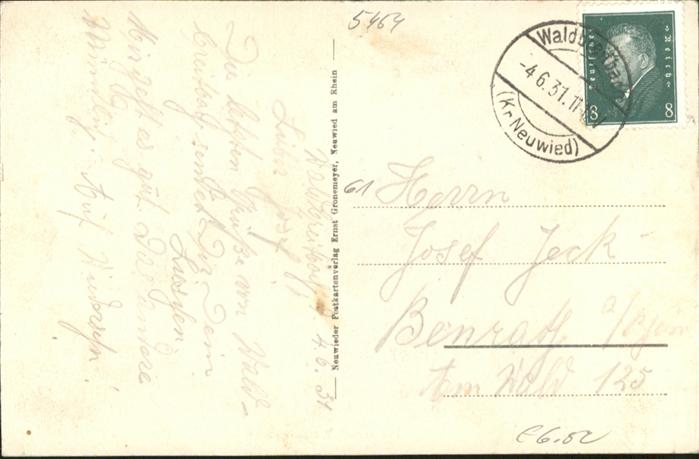 5464
Waldbreitbach 4.6.31
Lieber Josef!
Die letzten Grüße von Wald-
breitbach sendet Dir Dein
Mir geht es gut. Das andere
Mündlich. Auf Wiedersehn!
Neuwieder Postkartenverlag Ernst Gronemeyer, Neuwied am Rhein
Waldbreitbach
-4.6.31.11-
(Kr. Neuwied)
Deutsches Reich
8 8
61
Herrn
Josef Jeck
Benrath a/Rhein
Am Wald 125